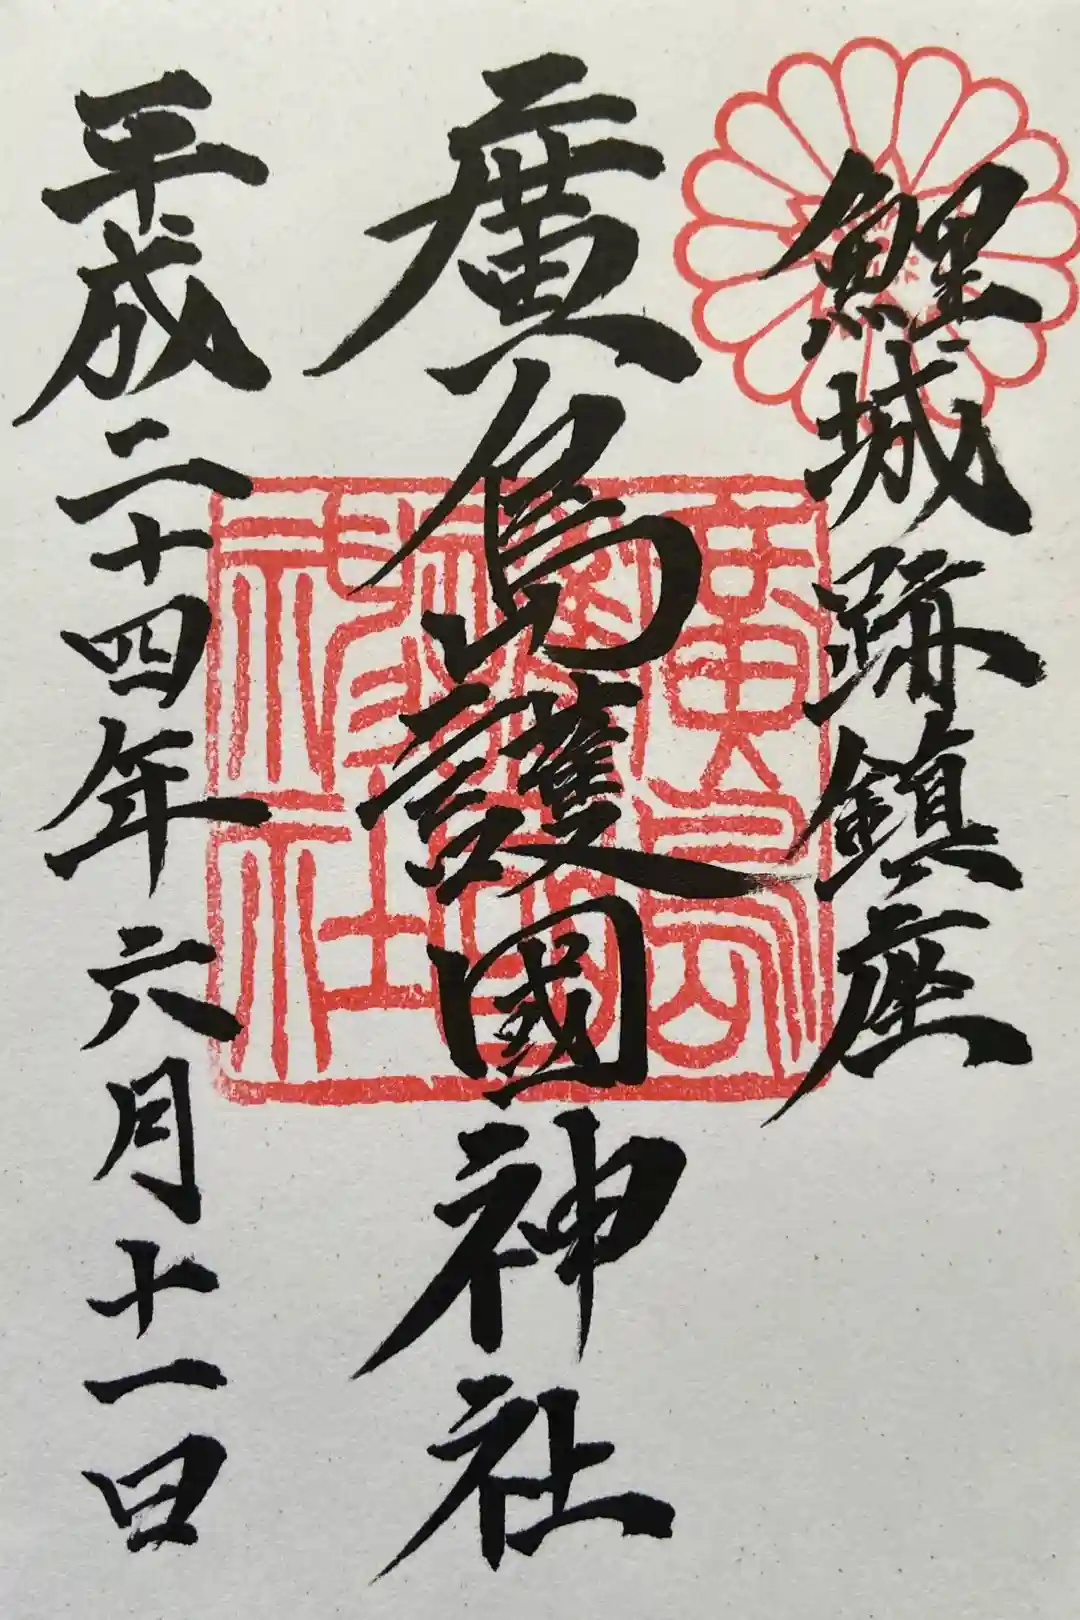 鯉城跡鎮座
廣島護國神社
平成二十四年六月十一日
廣島
護國
神社